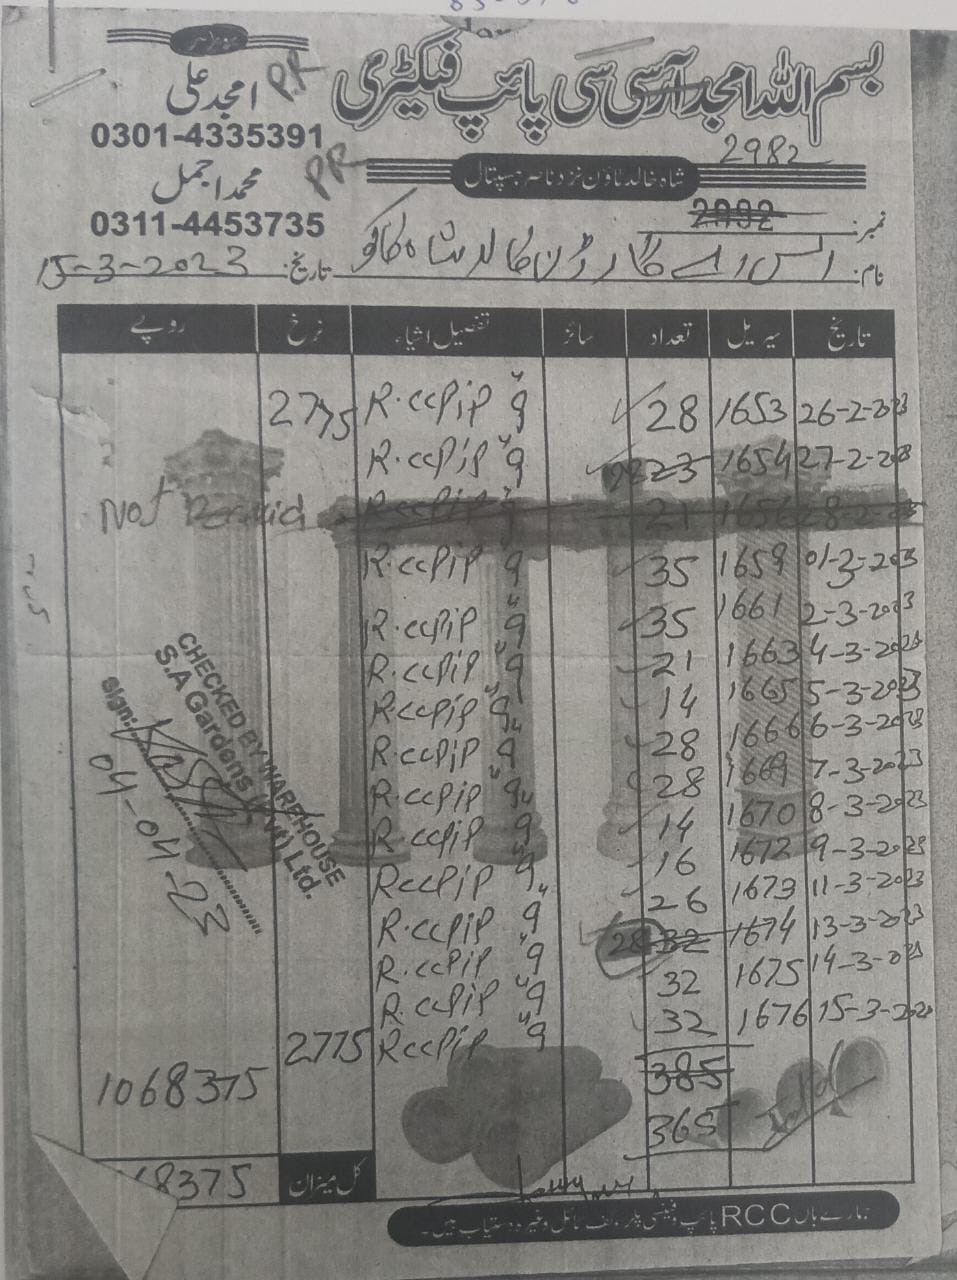 بسم اللہ امجد آر سی سی پائپ فیکٹری
امجد علی PR
0301-4335391
محمد اجمل PR
0311-4453735
شاہ خالد ٹاؤن نزد ناصر ہسپتال
2982
نمبر: 2002
نام: ایس اے گارڈن کالا شاہ کاکو تاریخ: 15-3-2023
تاریخ سیریل تعداد سائز تفصیل اشیاء نرخ روپے
26-2-2023 1653 28 R.ccPip 9" 2775
27-2-2023 1654 23 22 R.ccPip 9"
28-2-2023 1656 21 R.ccPip 9" Not Received
01-3-2023 1659 35 R.ccPip 9"
2-3-2023 1661 35 R.ccPip 9"
4-3-2023 1663 21 R.ccPip 9"
5-3-2023 1665 14 R.ccPip 9"
6-3-2023 1666 28 R.ccPip 9"
7-3-2023 1669 28 R.ccPip 9"
8-3-2023 1670 14 R.ccPip 9"
9-3-2023 1672 16 RccPip 9"
11-3-2023 1673 26 R.ccPip 9"
13-3-2023 1674 32 28 R.ccPip 9"
14-3-2023 1675 32 R.ccPip 9"
15-3-2023 1676 32 RccPip 9" 2775
385
365
1068375
CHECKED BY WAREHOUSE
S.A Gardens (Pvt) Ltd.
sign:
04-04-23
کل میزان 68375
ہمارے ہاں RCC پائپ و فینسی پلر، دستیاب ہیں۔